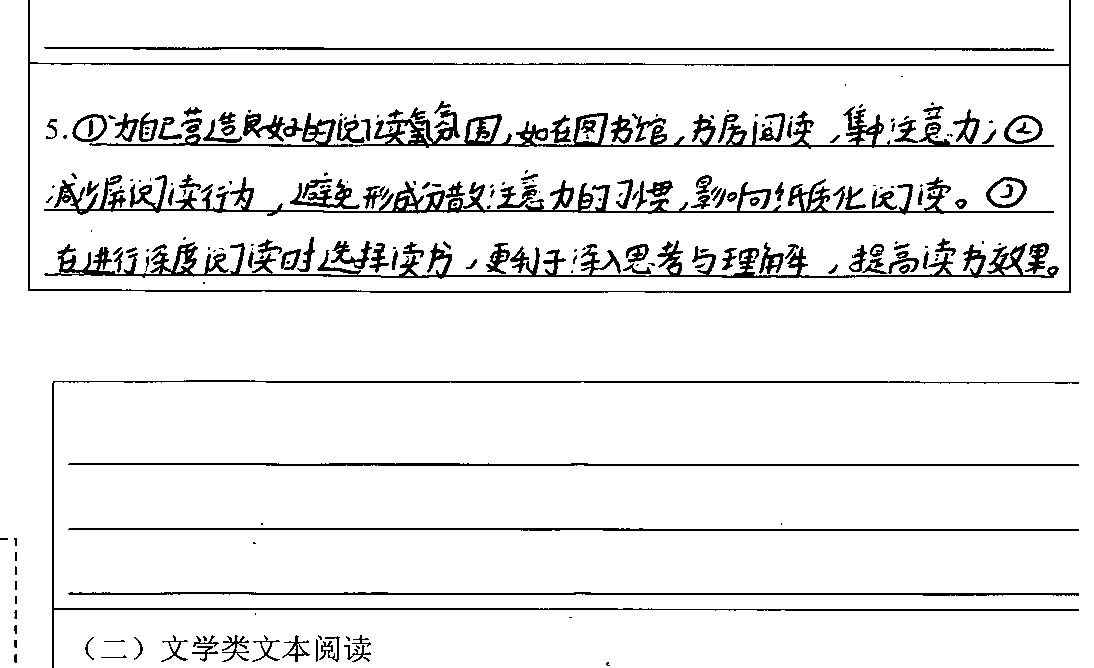 5.①为自己营造良好的阅读氛氛围,如在图书馆,书房阅读,集中注意力;②
减少屏阅读行为,避免形成分散注意力的习惯,影响纸质化阅读。③
在进行深度阅读时选择读书,更利于深入思考与理解,提高读书效果。
（二）文学类文本阅读